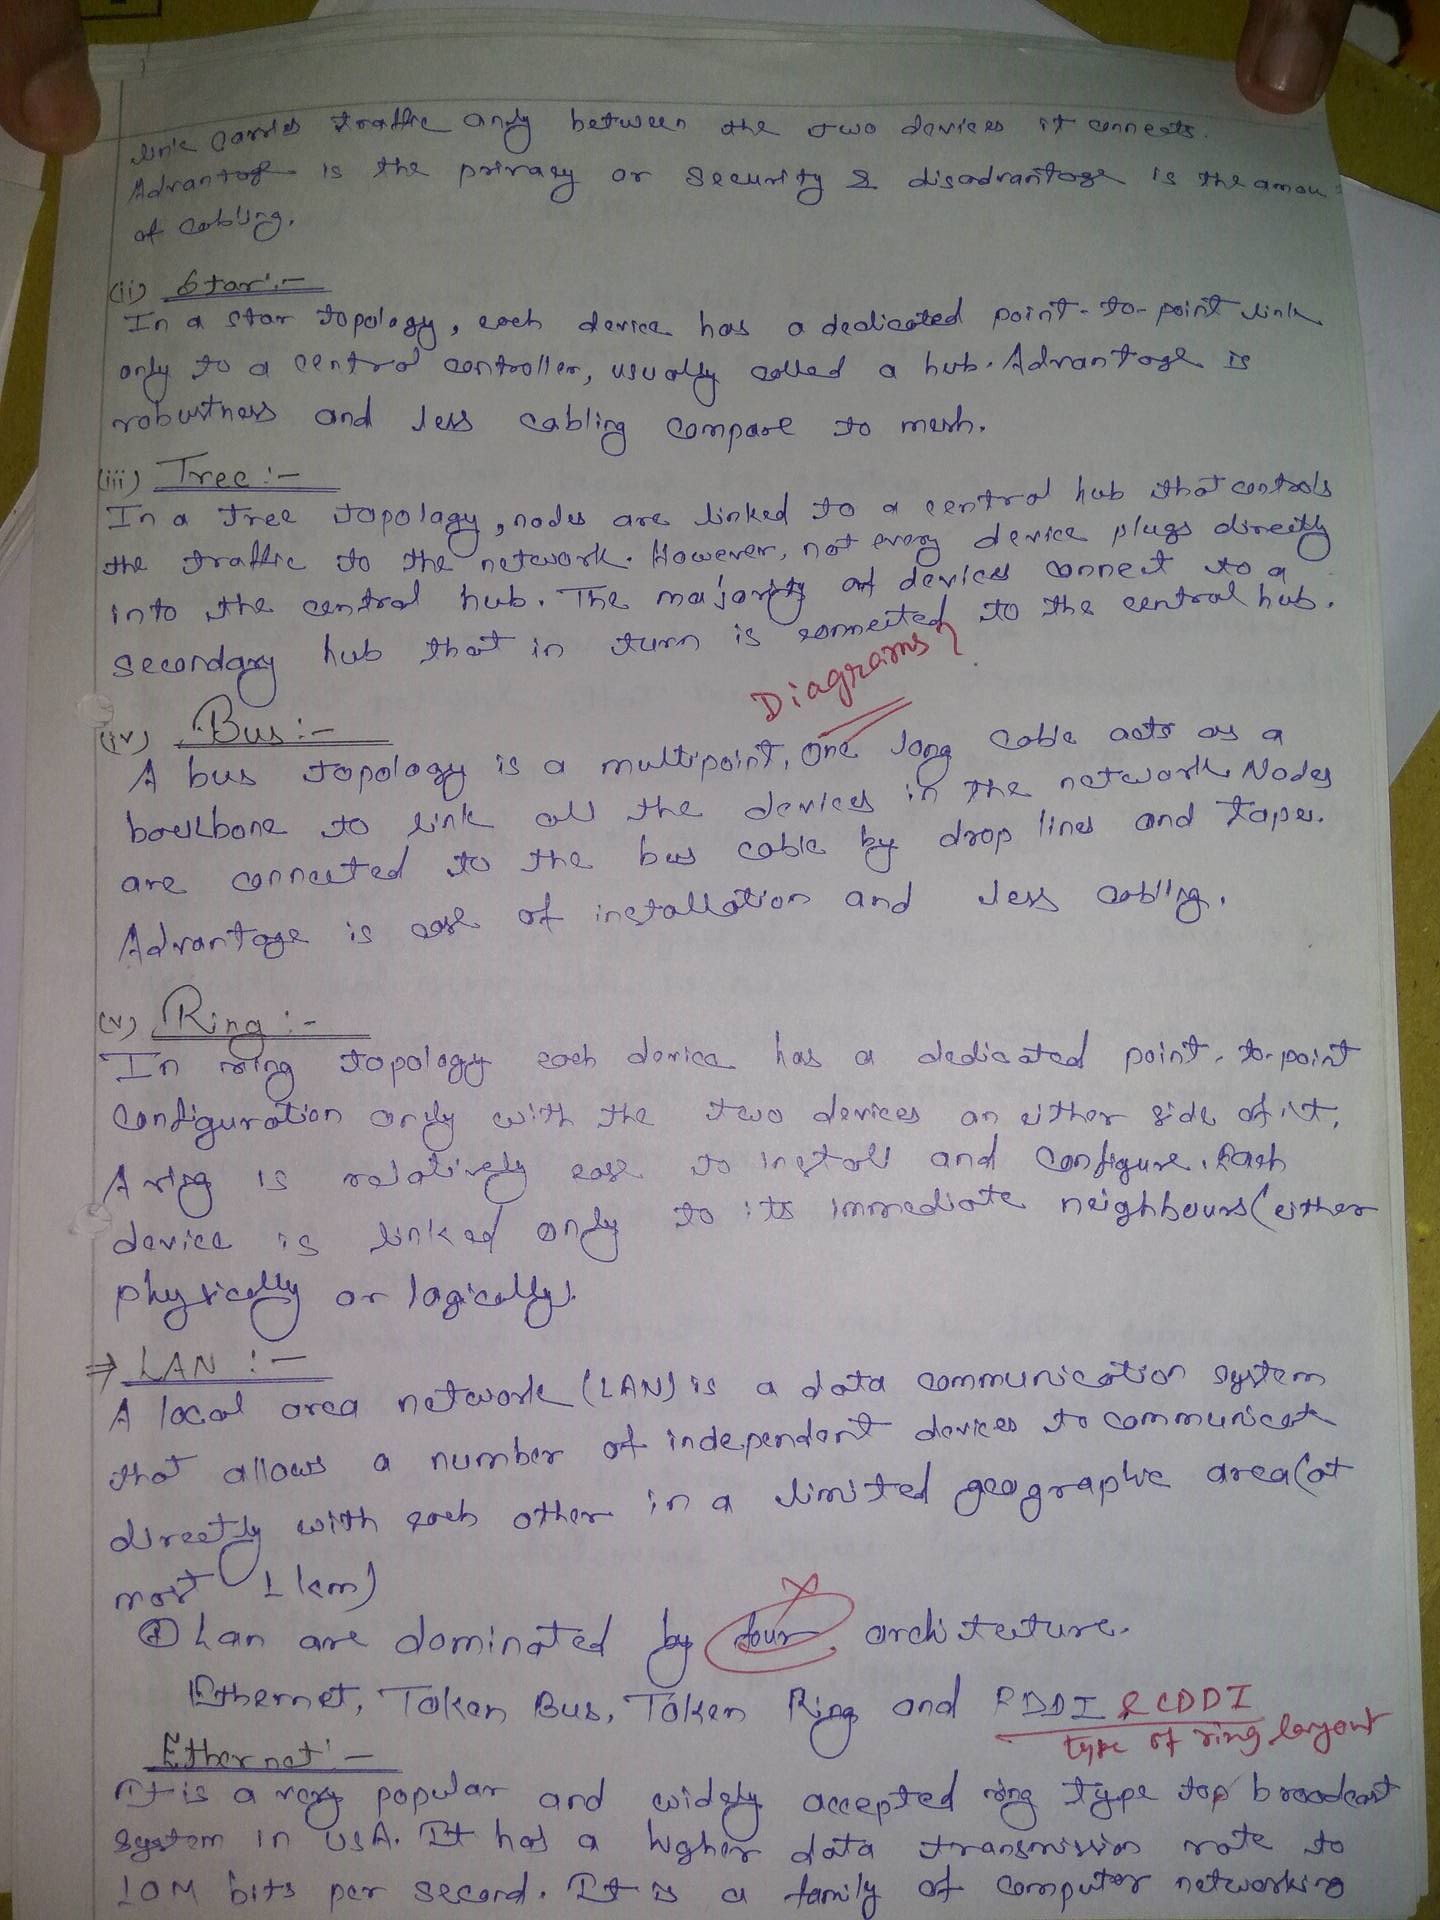 link carries traffic only between the two devices it connects.
Advantage is the privacy or security & disadvantage is the amou
of cabling.
(ii) Star:-
In a star topology, each device has a dedicated point-to-point link
only to a central controller, usually called a hub. Advantage is
robustness and less cabling compare to mesh.
(iii) Tree:-
In a tree topology, nodes are linked to a central hub that controls
the traffic to the network. However, not every device plugs directly
into the central hub. The majority of devices connect to a
secondary hub that in turn is connected to the central hub.
Diagrams?
(iv) Bus:-
A bus topology is a multipoint, one long cable acts as a
backbone to link all the devices in the network. Nodes
are connected to the bus cable by drop lines and tapes.
Advantage is ease of installation and less cabling.
(v) Ring:-
In ring topology each device has a dedicated point-to-point
configuration only with the two devices on either side of it.
A ring is relatively ease to install and configure. Each
device is linked only to its immediate neighbours (either
physically or logically).
⇒ LAN :-
A local area network (LAN) is a data communication system
that allows a number of independent devices to communicate
directly with each other in a limited geographic area (at
most 1 km)
Lan are dominated by four architecture.
Ethernet, Token Bus, Token Ring and FDDI & CDDI
type of ring layout
Ethernet:-
It is a very popular and widely accepted ring type top broadcast
system in USA. It has a higher data transmission rate to
10M bits per second. It is a family of computer networking